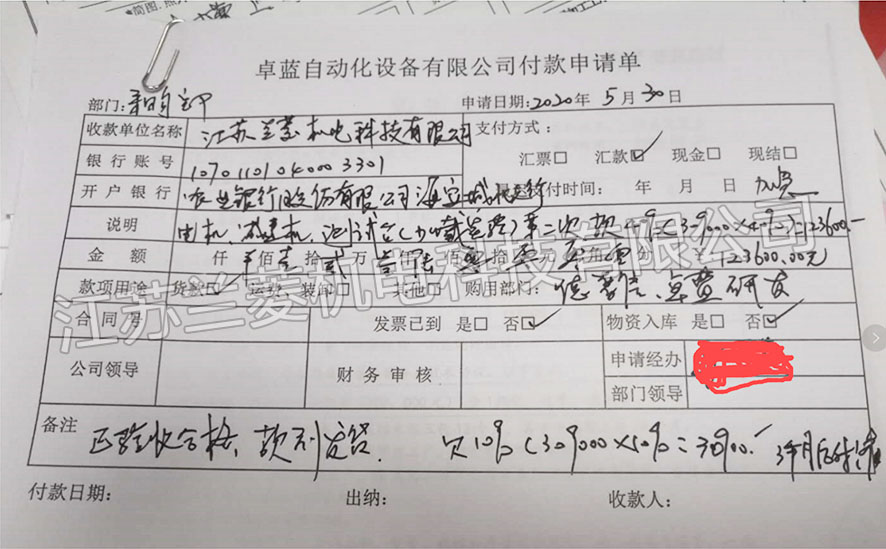 卓蓝自动化设备有限公司付款申请单
部门： 申请日期：2020年5月30日
收款单位名称 江苏兰菱机电科技有限公司 支付方式：
银行账号 10701101040003301 汇票□ 汇款☑ 现金□ 现结□
开户银行 农业银行股份有限公司海安城 付时间： 年 月 日 加急
说明 电机、减速机、测试台(加载总路)第二次款40%(309000×40%)=123600.-
金额 仟 佰壹拾贰万叁仟陆佰零拾零元零角零分 ￥:123600.00元
款项用途 货款☑ 运费、装卸□ 其他□ 购用部门： 研发
合同号 发票已到 是□ 否☑ 物资入库 是□ 否☑
公司领导 财务审核 申请经办
部门领导
备注 已验收合格，款到发货. 欠10%(309000×10%=30900.- 3个月后付清
付款日期： 出纳： 收款人：
江苏兰菱机电科技有限公司